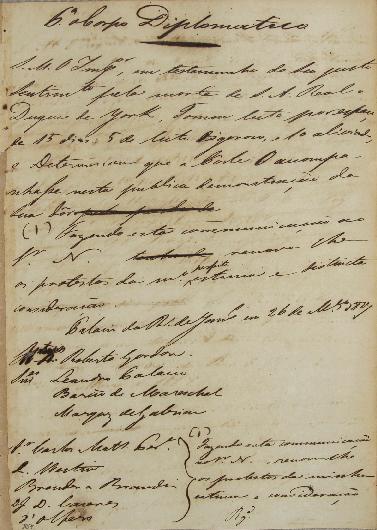 Corpo Diplomatico
S. M. O Imp.or, em testemunho do seu justo
sentim.to pela morte de S. A. Real o
Duque de York, Tomou luto por espaço
de 15 dias, 5 de luto rigoroso, e 10 aliviado,
e Determinou que a Corte O acompa-
nhasse nesta publica demonstração da
sua dor
(1) Fazendo esta communicação ao
Sr. N. renova-lhe
os protestos da m.a estima e distincta
consideração
Palacio do R.o de Jan.ro em 26 de M.ço 1827
Roberto Gordon.
Leandro Palacio
Barão de Mareschel
Marquez de Gabriac
(1)
Fazendo esta communicação
ao Sr. N. renova-lho
os protestos da minha
estima e consideração